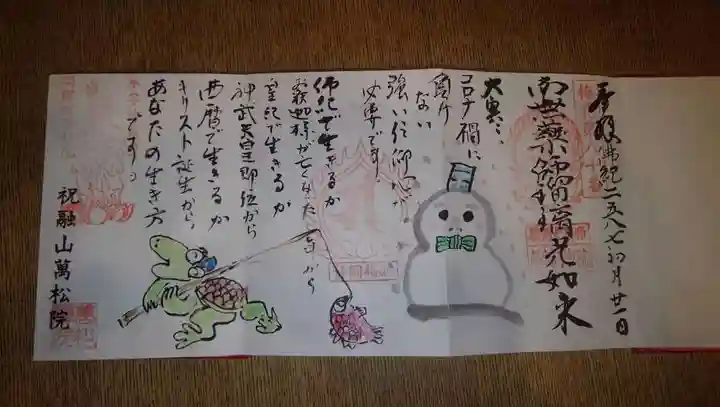 奉拝 佛紀二五八七 初月廿一日
南無薬師瑠璃光如来
大寒に
コロナ禍に
負け
ない
強い信仰心が
必要です
佛紀で生きるか
お釈迦様が亡くなった年から
皇紀で生きるか
神武天皇即位から
西暦で生きるか
キリスト誕生から
あなたの生き方
です
祝融山萬松院